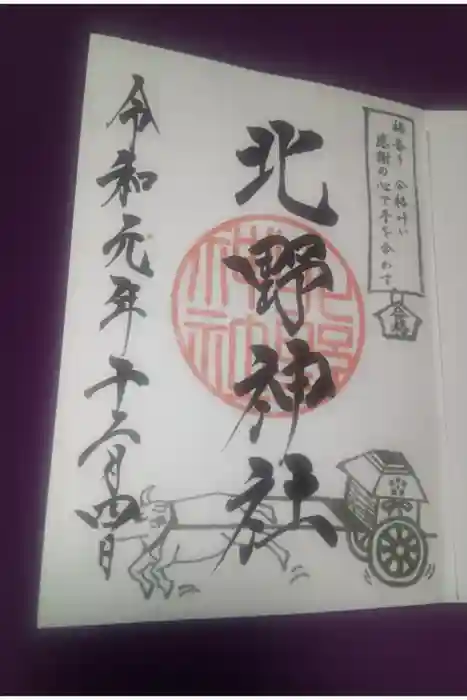 梅香り 合格叶い
感謝の心で手を合わせ
合格
北野神社
北野
神社
令和元年十二月四日